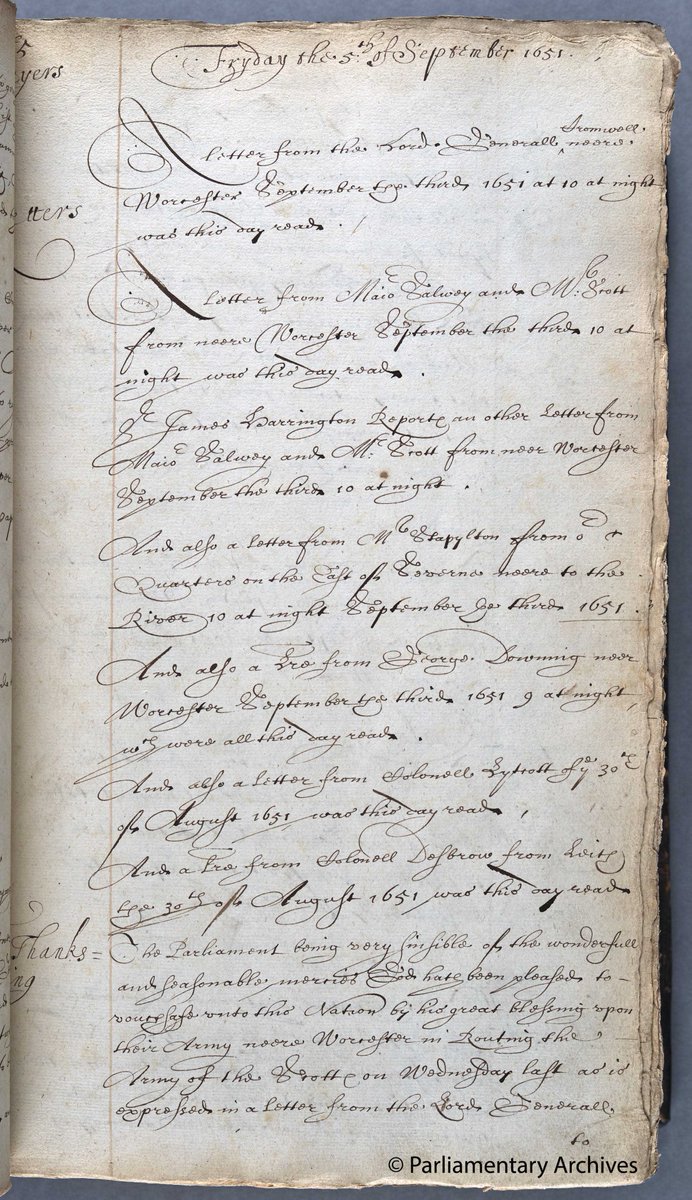 5
yers
Fryday the 5th of September 1651.
Cromwell
A Letter from the Lord Generall ^ neere
Worcester September the third 1651 at 10 at night
was this day read.
tters
A Letter from Maior Salwey and Mr. Scott
from neere Worcester September the third 10 at
night was this day read.
Sr James Harrington Reports an other Letter from
Maior Salwey and Mr Scott from neer Worcester
September the third 10 at night.
And also a Letter from Mr Stapylton from or
Quarters on the East of Severne neere to the
River 10 at night September ye third 1651.
And also a Lre from George Downing neer
Worcester September the third 1651 9 at night
wch were all this day read.
And also a Letter from Colonell Lytcott of ye 30th
of August 1651 was this day read,
And a Lre from Colonell Desbrow from Leith
the 30th of August 1651 was this day read
Thanks=
ing
The Parliament being very sinsible of the wonderfull
and seasonable mercies God hath been pleased to-
vouchsafe unto this Nation by his great blessing upon
their Army neere Worcester in Routing the
Army of the Scotts on Wednesday last as is
expressed in a Letter from the Lord Generall
to
© Parliamentary Archives